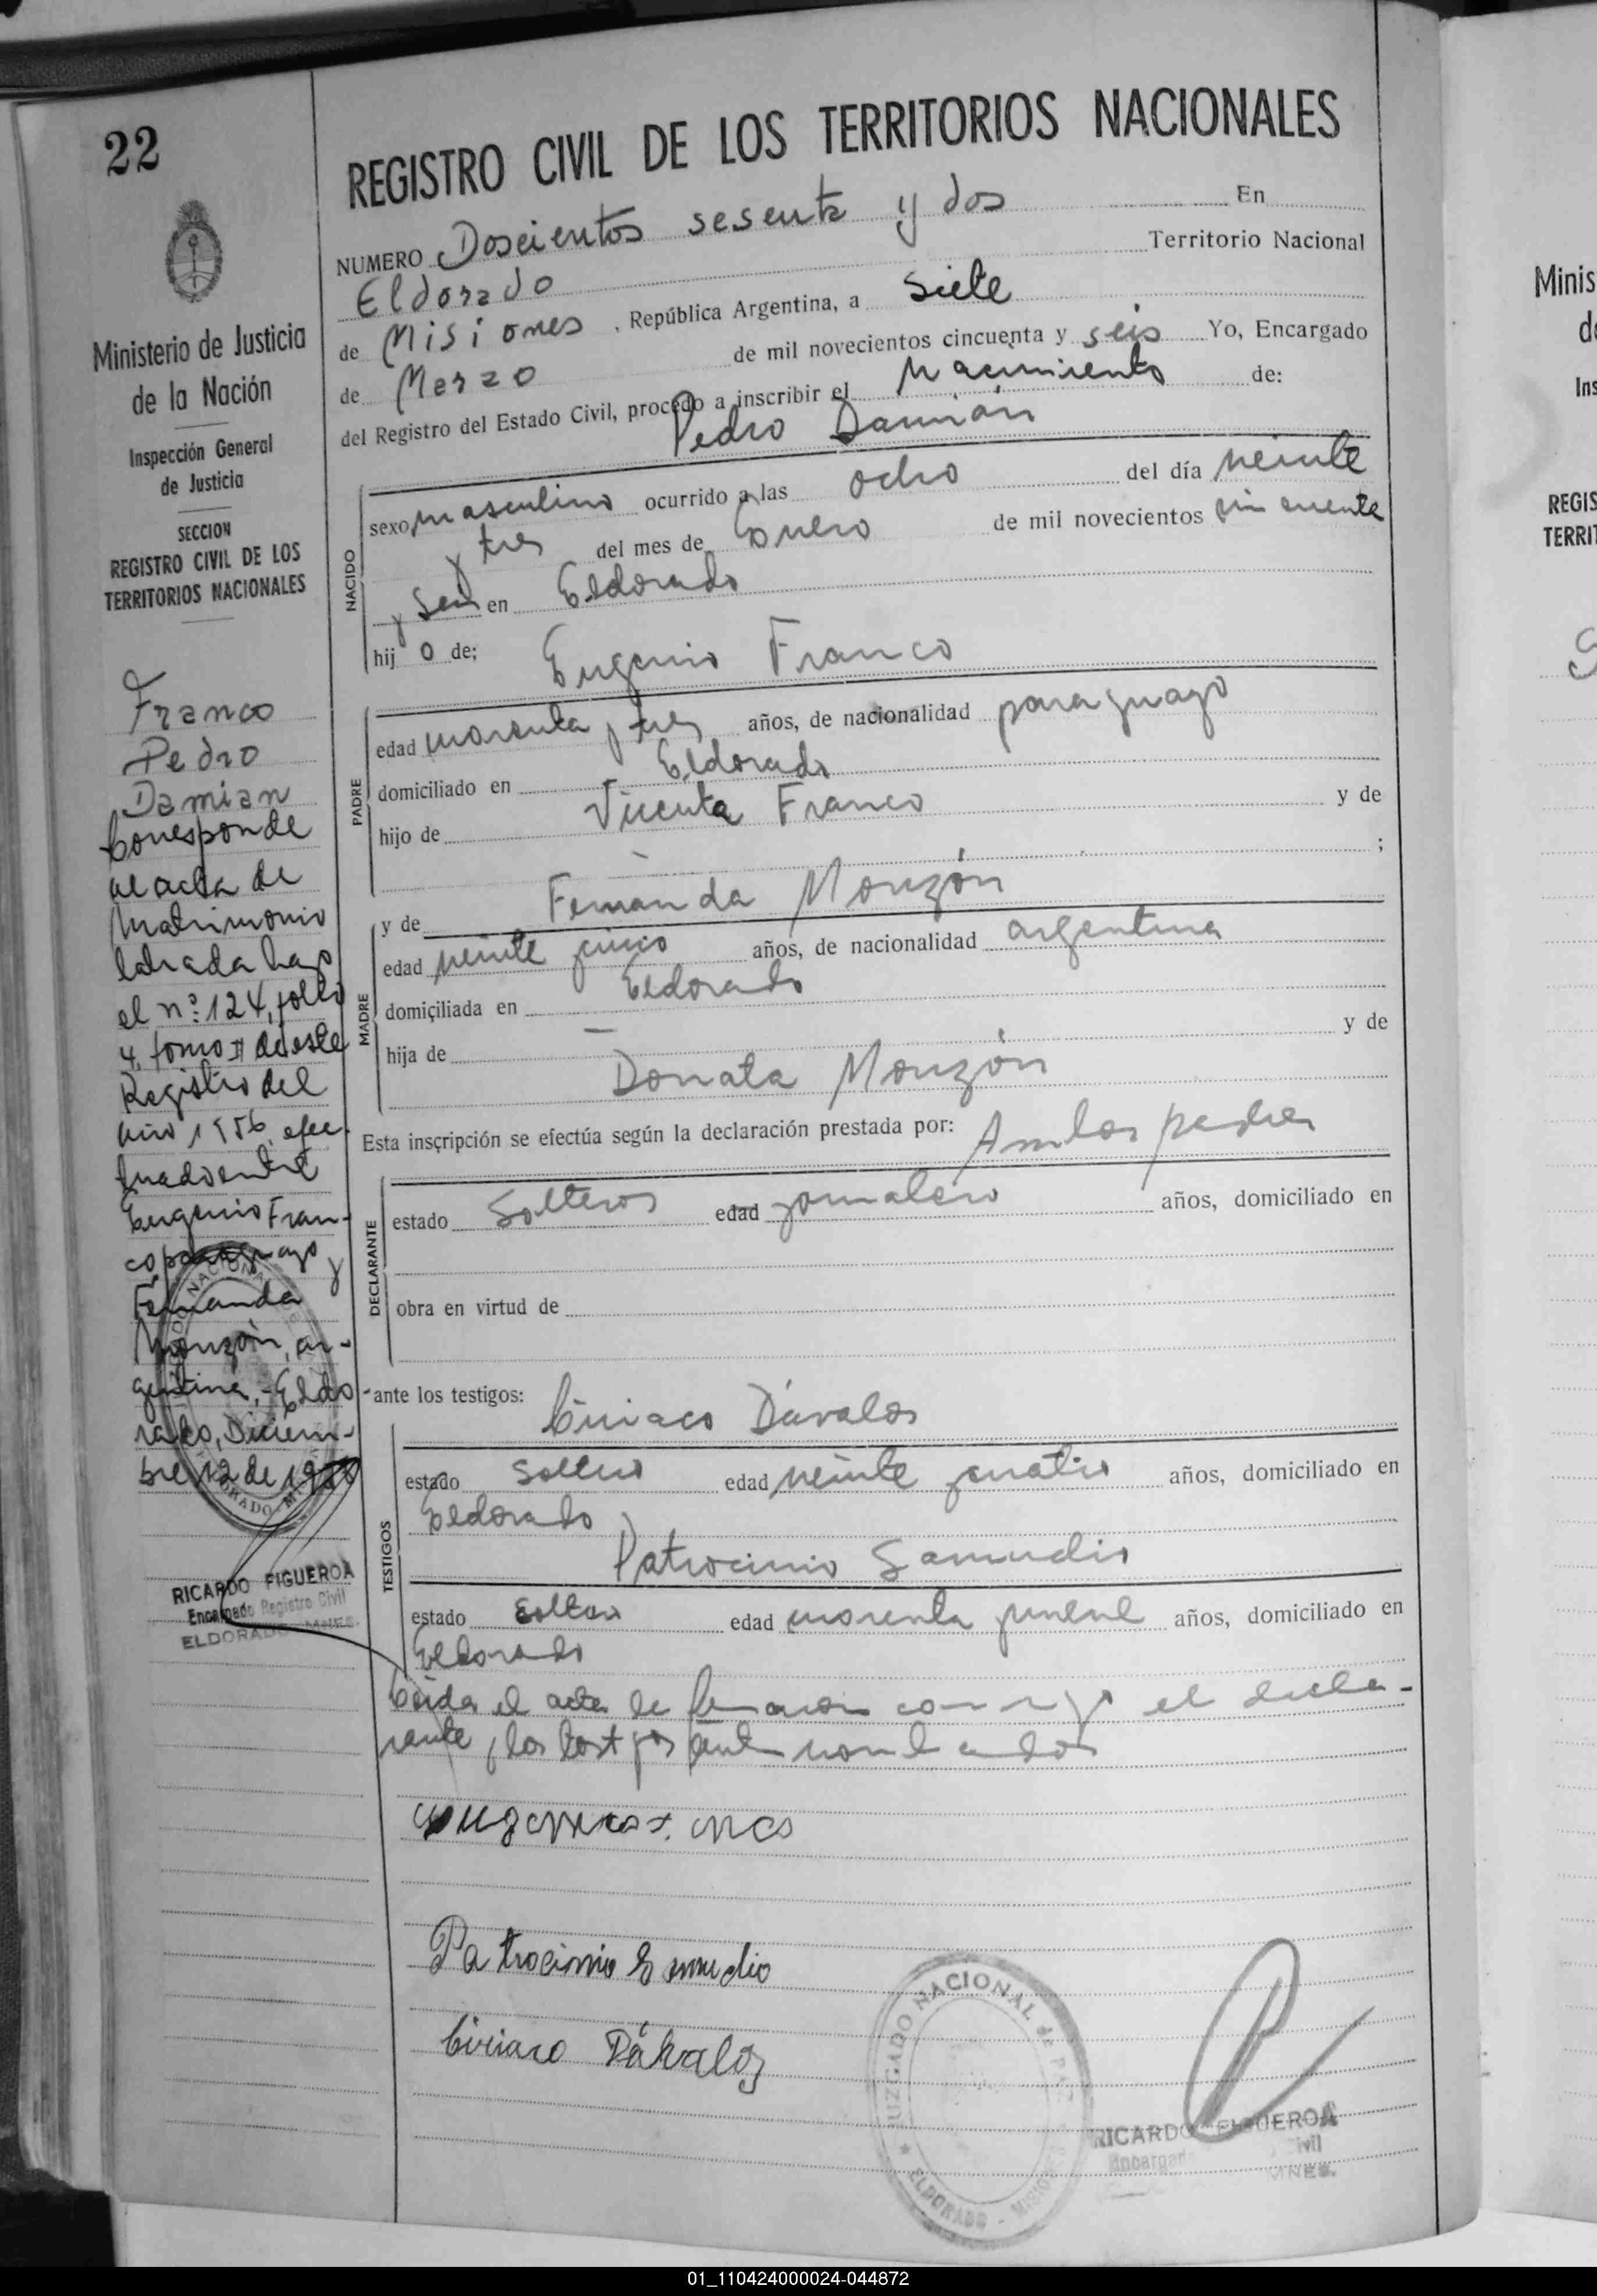 22
Ministerio de Justicia
de la Nación
Inspección General
de Justicia
SECCION
REGISTRO CIVIL DE LOS
TERRITORIOS NACIONALES
Franco
Pedro
Damian
Corresponde
al acta de
Matrimonio
labrada bajo
el nº: 124, folio
4, tomo II de este
Registro del
año 1956, efec-
tuado entre
Eugenio Fran-
co, paraguayo y
Fernanda
Monzón, ar-
gentina.- Eldo-
rado, Diciem-
bre 12 de 1956
RICARDO FIGUEROA
Encargado Registro Civil
ELDORADO MNES.
REGISTRO CIVIL DE LOS TERRITORIOS NACIONALES
NUMERO Doscientos sesenta y dos En
Eldorado Territorio Nacional
de Misiones, República Argentina, a siete
de Marzo de mil novecientos cincuenta y seis Yo, Encargado
del Registro del Estado Civil, procedo a inscribir el nacimiento de:
Pedro Damián
NACIDO
sexo masculino ocurrido a las ocho del día veinte
y tres del mes de Enero de mil novecientos cincuenta
y seis en Eldorado
hijo de; Eugenio Franco
PADRE
edad cuarenta y tres años, de nacionalidad paraguayo
domiciliado en Eldorado
hijo de Vicenta Franco y de
;
y de Fernanda Monzón
MADRE
edad veinte y cinco años, de nacionalidad argentina
domiciliada en Eldorado
hija de y de
Donata Monzón
Esta inscripción se efectúa según la declaración prestada por: Ambos padres
DECLARANTE
estado Solteros edad jornalero años, domiciliado en
obra en virtud de
ante los testigos: Ciriaco Dávalos
TESTIGOS
estado soltero edad veinte y cuatro años, domiciliado en
Eldorado
Patrocinio Samudio
estado soltero edad cuarenta y nueve años, domiciliado en
Eldorado
Leída el acta la firmaron conmigo el decla-
rante y los testigos antes nombrados
Patrocinio Samudio
Ciriaco Dávalos
JUZGADO NACIONAL de PAZ
ELDORADO - MISIONES
RICARDO FIGUEROA
Encargado Civil
MNES.
Minis
de
Ins
REGIS
TERRI
01_110424000024-044872